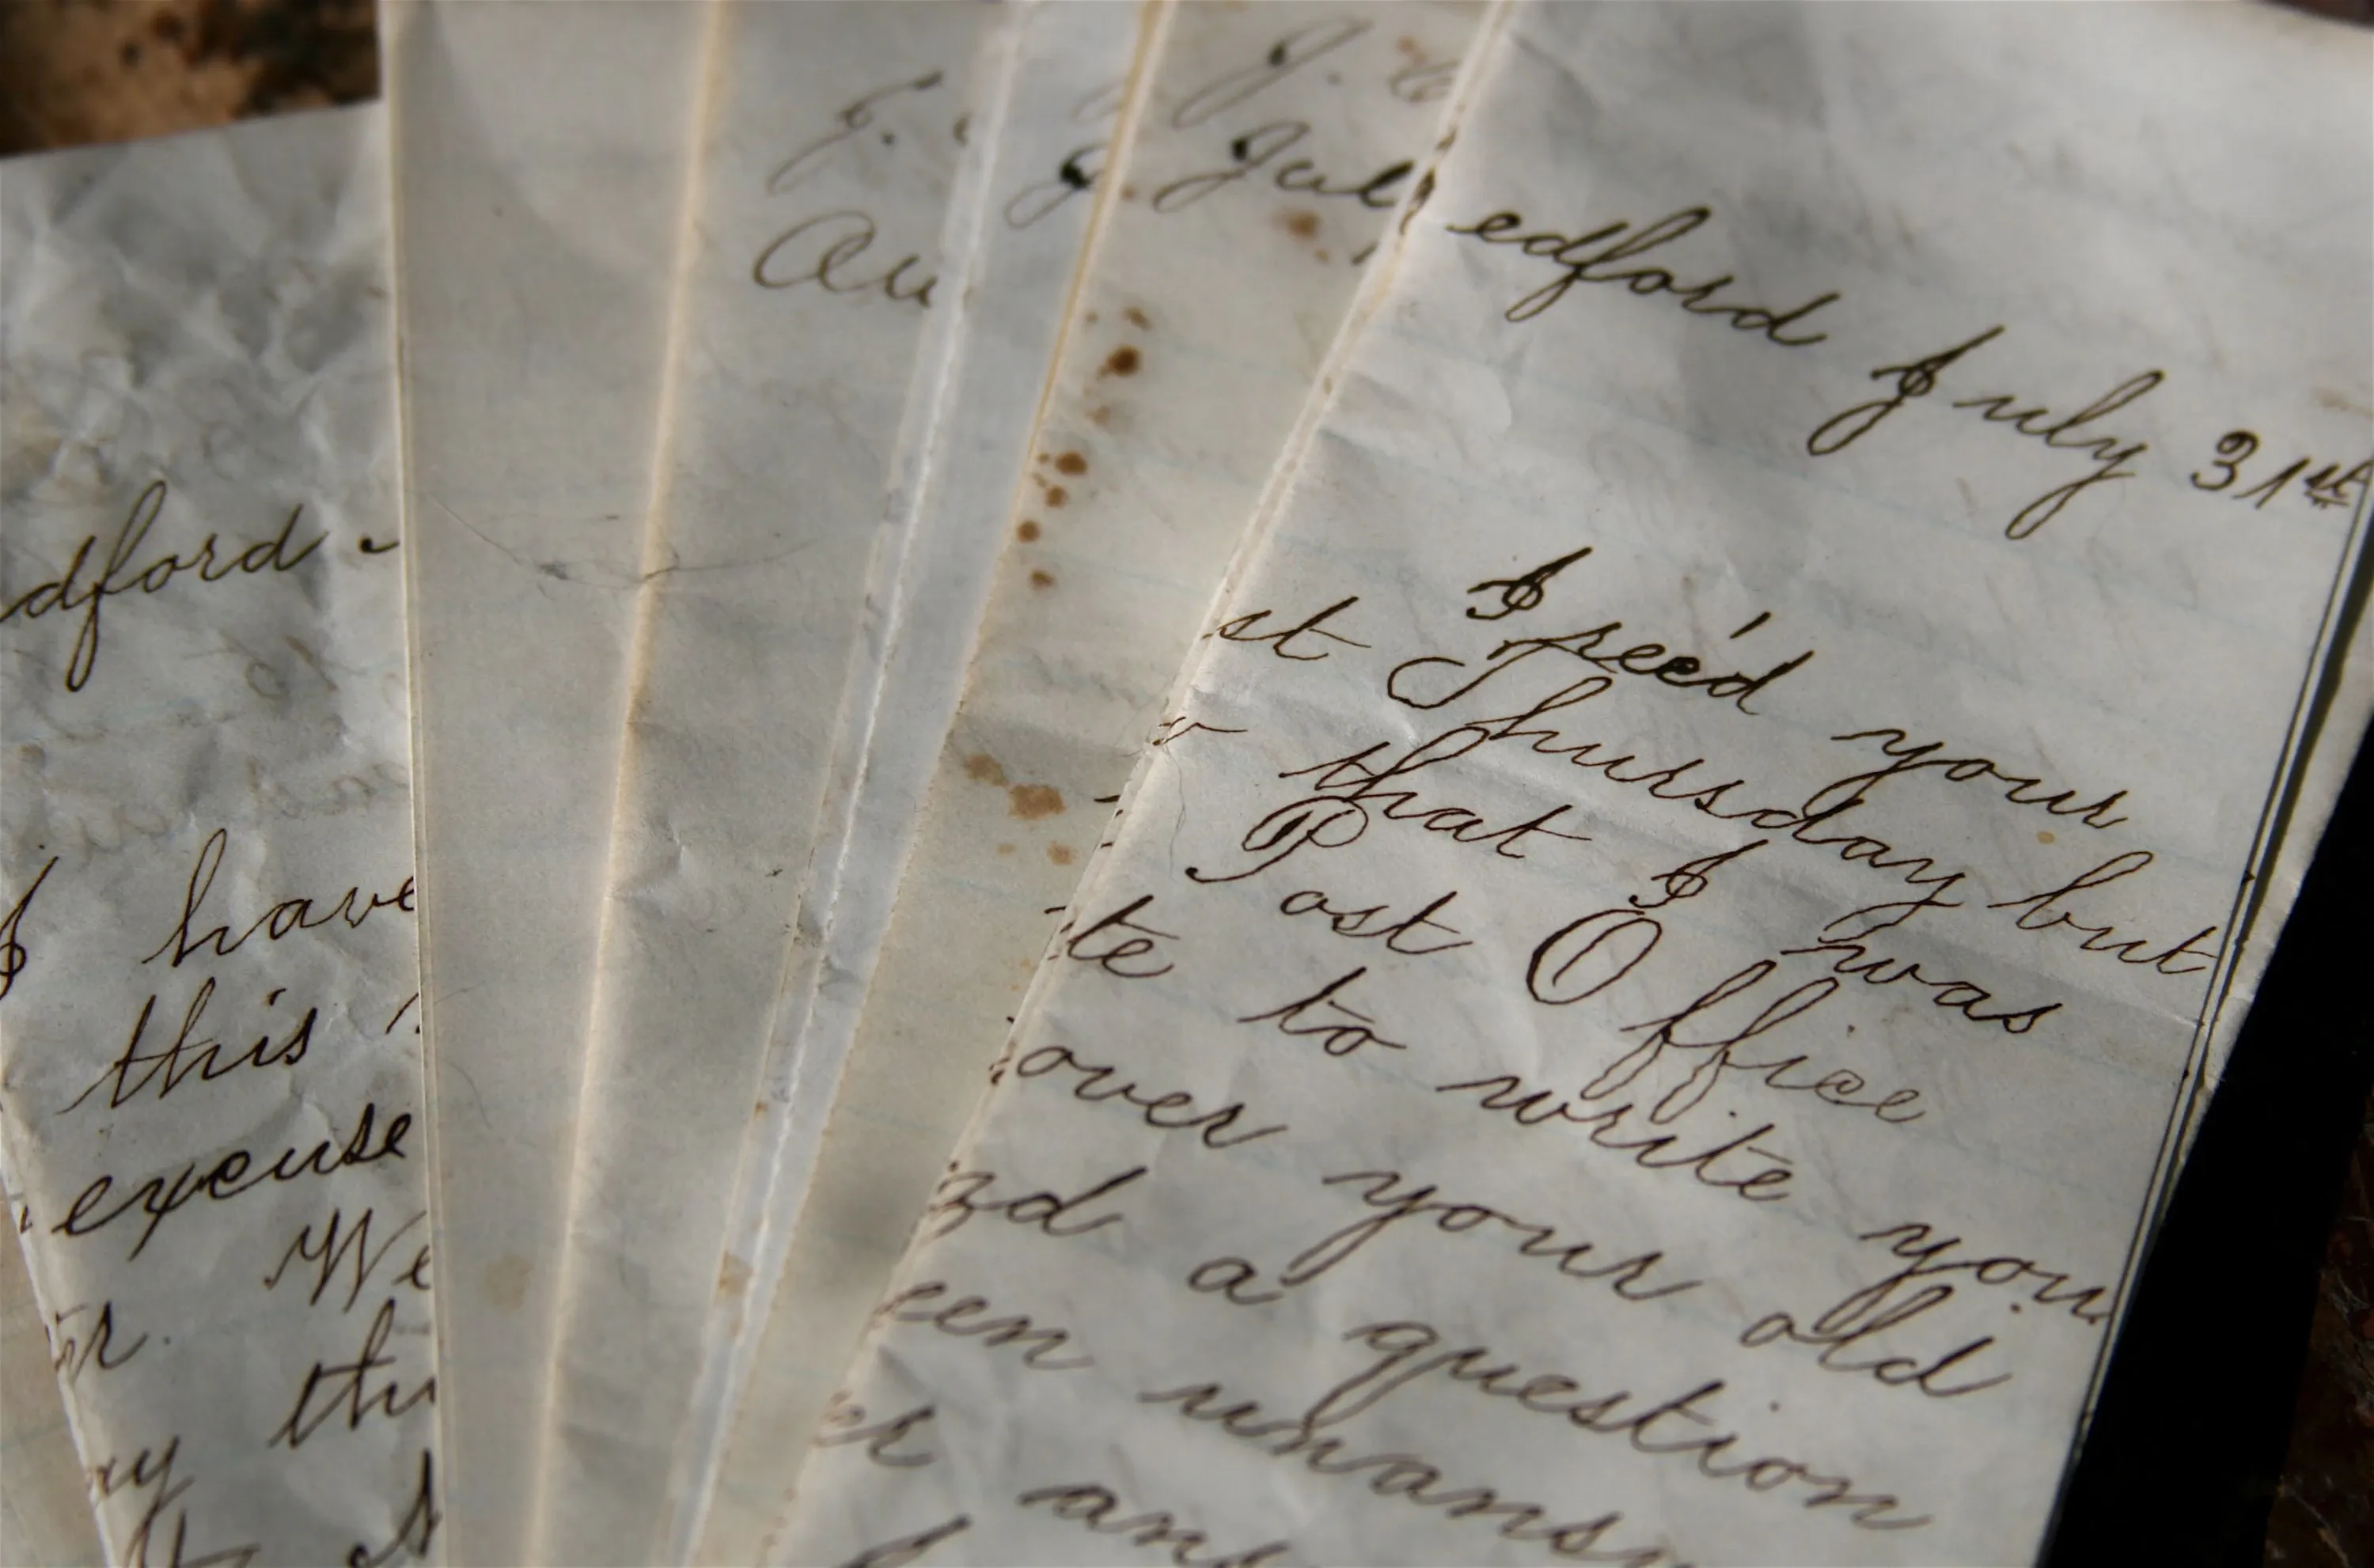 dford
I have
this
excuse
We
thi
ay
J.
Au
J.
Jul
edford July 31st
I rec'd your
st Thursday but
that I was
Post Office
te to write you
over your old
zd a question
een unans
er ans